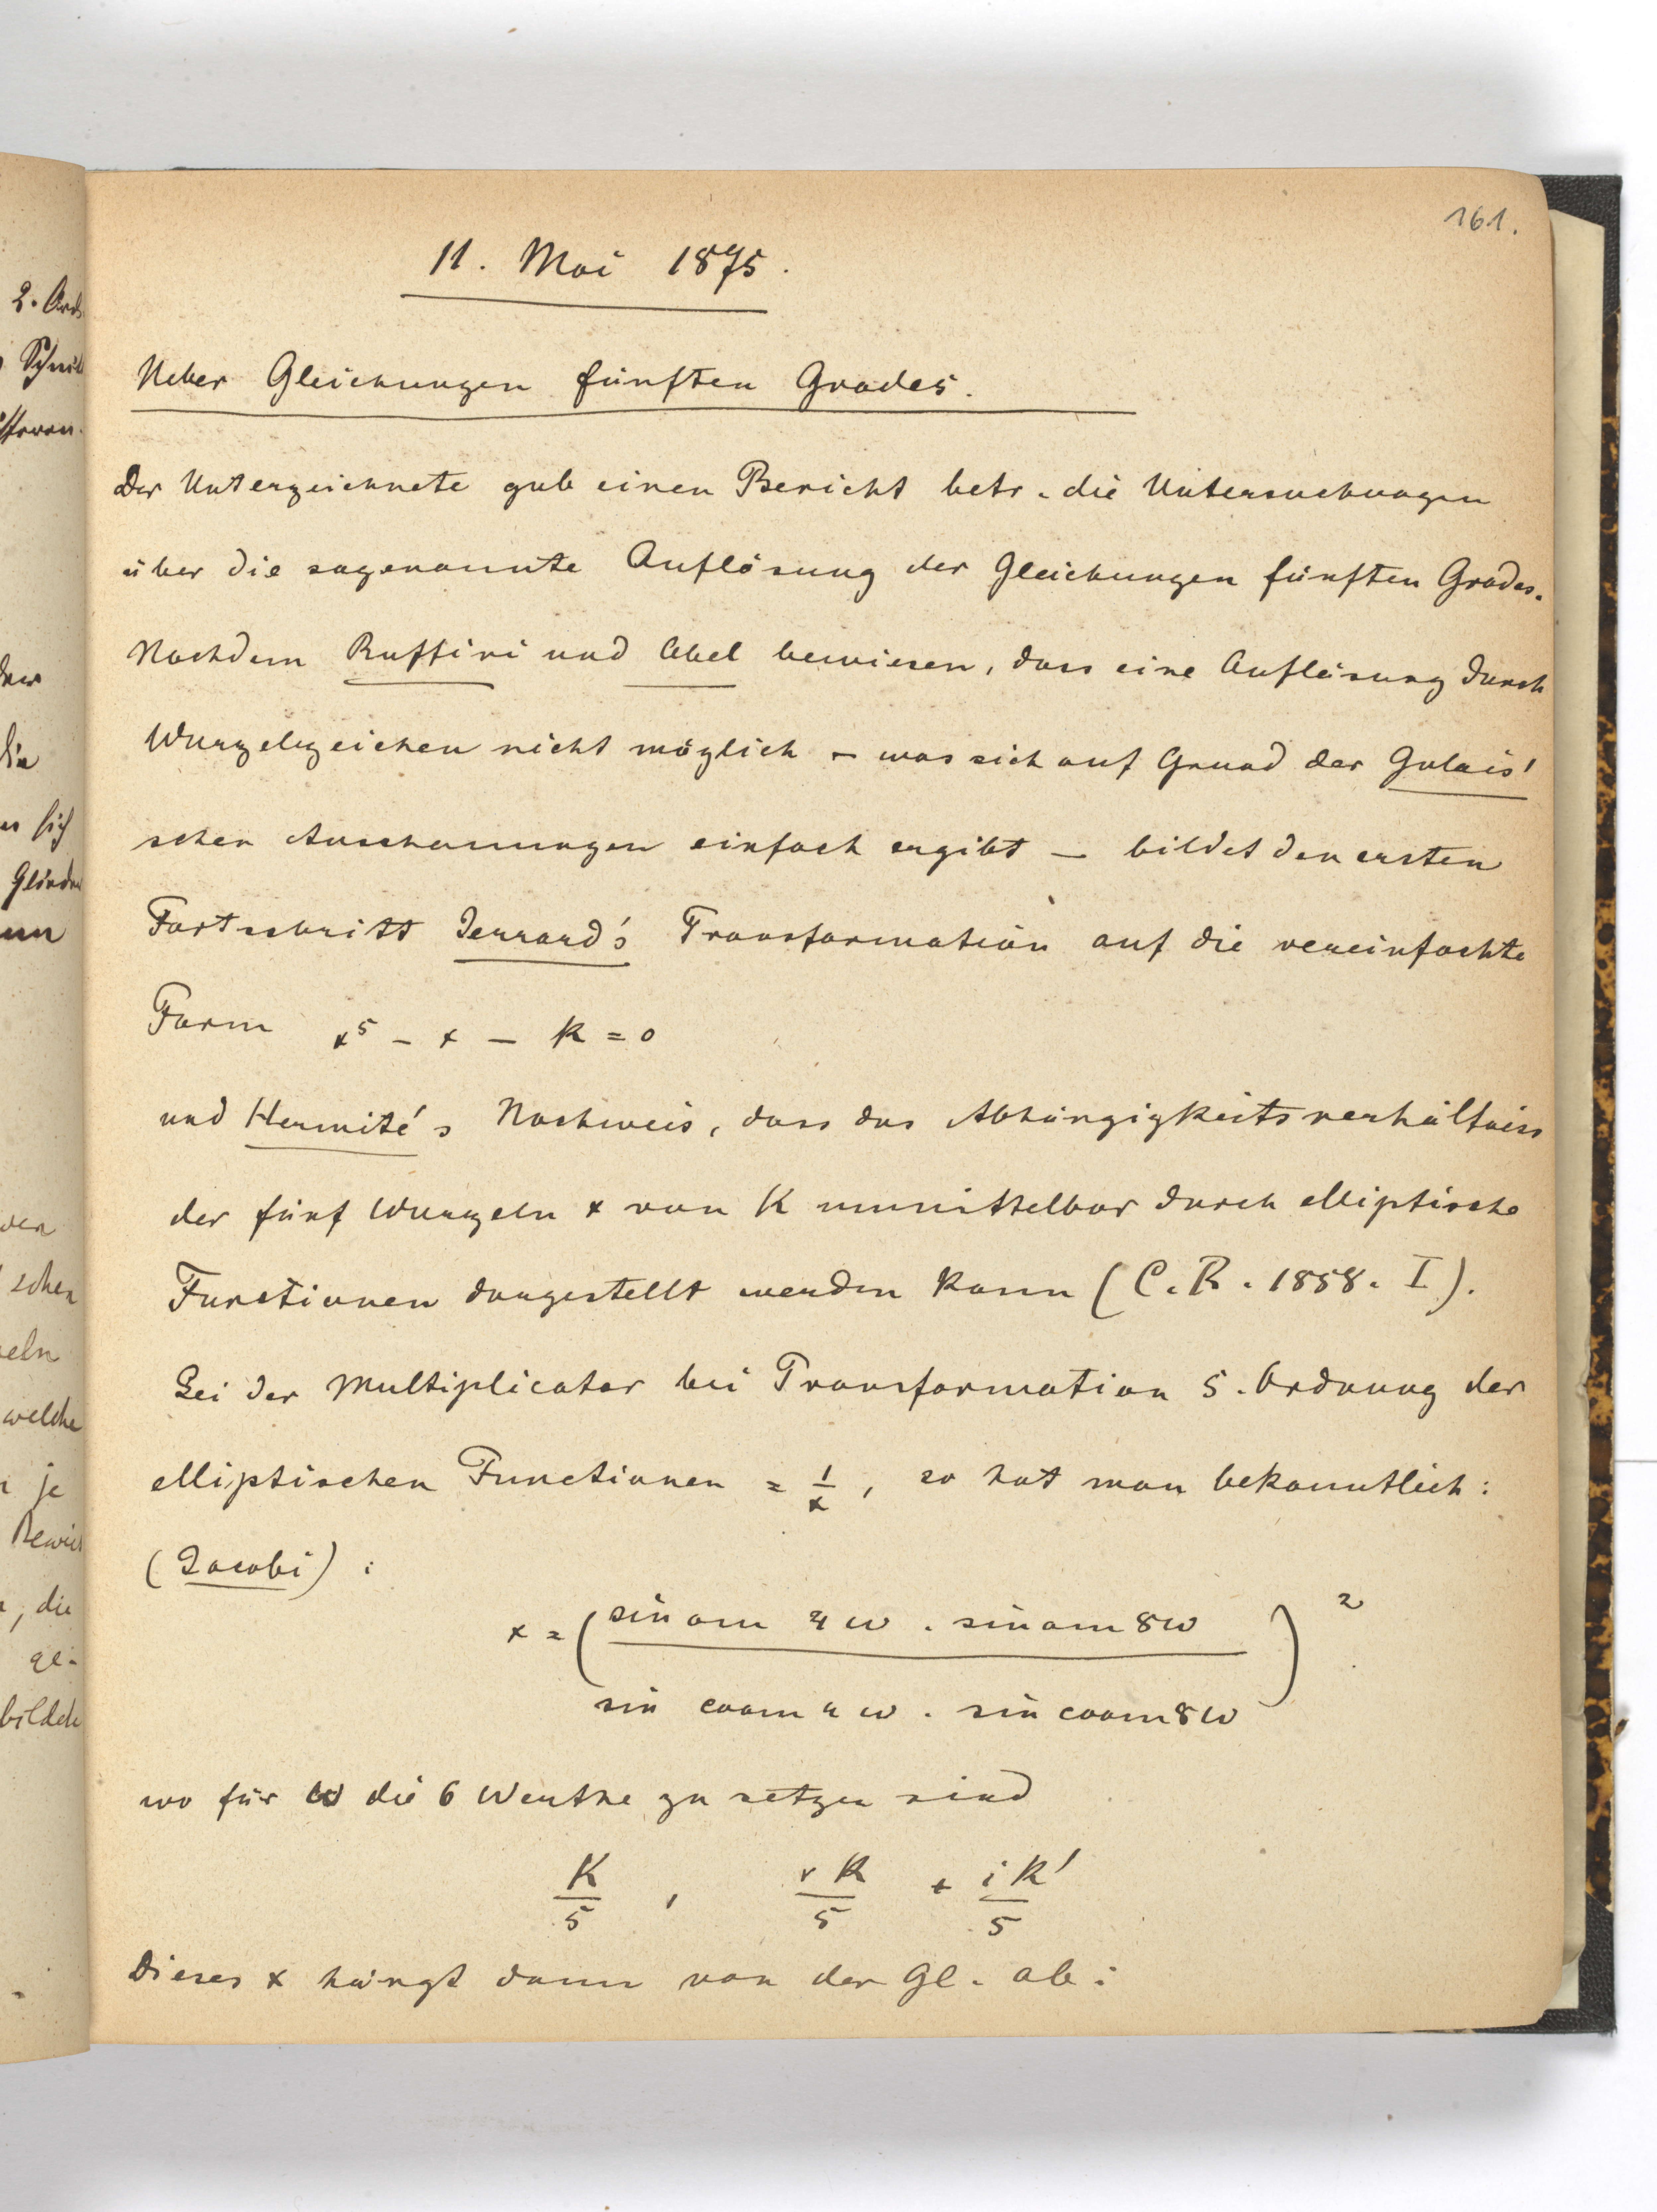 161.
11. Mai 1875.
Ueber Gleichungen fünften Grades.
Der Unterzeichnete gab einen Bericht betr. die Untersuchungen
über die sogenannte Auflösung der Gleichungen fünften Grades.
Nachdem Ruffini und Abel bewiesen, dass eine Auflösung durch
Wurzelzeichen nicht möglich – was sich auf Grund der Galois'
schen Anschauungen einfach ergibt – bildet den ersten
Fortschritt Jerrard's Transformation auf die vereinfachte
Form x⁵ – x – k = 0
und Hermite's Nachweis, dass das Abhängigkeitsverhältniss
der fünf Wurzeln x von K unmittelbar durch elliptische
Functionen dargestellt werden kann (C. R. 1858. I).
Sei der Multiplicator bei Transformation 5. Ordnung der
elliptischen Functionen = 1/x, so hat man bekanntlich:
(Jacobi):
x = (sin am 4ω . sin am 8ω / sin coam 4ω . sin coam 8ω)²
wo für ω die 6 Werthe zu setzen sind
K/5 , rK/5 + iK'/5
Dieses x hängt dann von der Gl. ab: